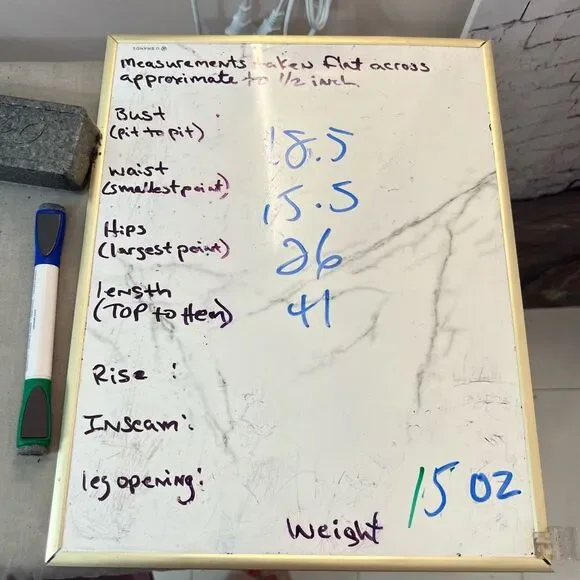 Measurements taken flat across
approximate to 1/2 inch
Bust
(pit to pit)
18.5
Waist
(smallest point)
15.5
Hips
(largest point)
26
length
(TOP to Hem)
41
Rise :
Inseam:
leg opening:
15 oz
Weight